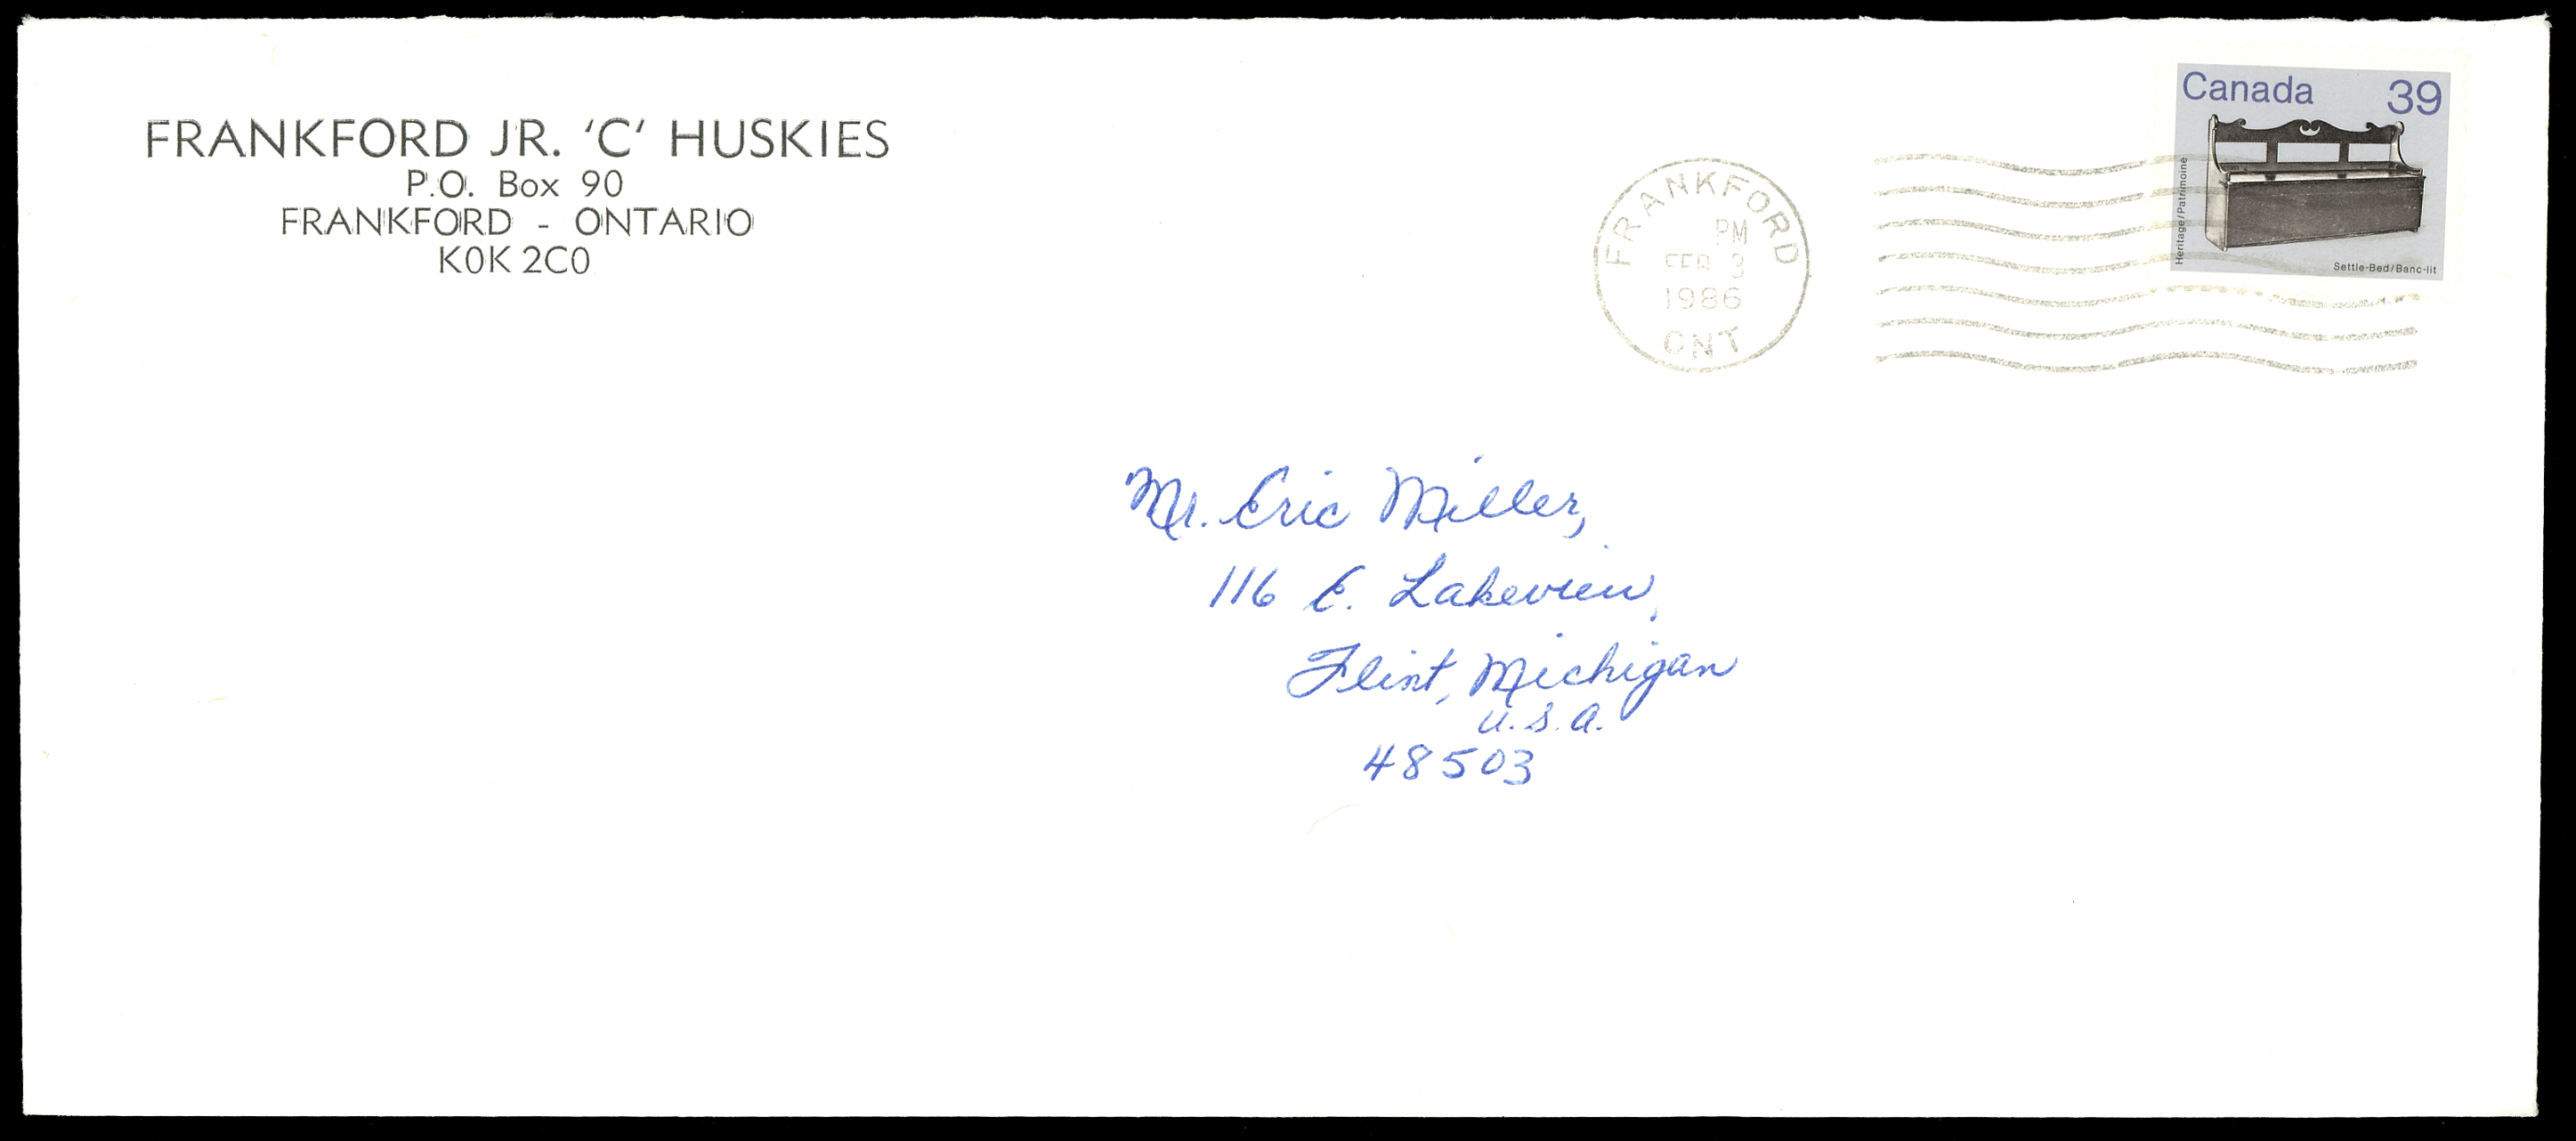 FRANKFORD JR. 'C' HUSKIES
P.O. Box 90
FRANKFORD - ONTARIO
K0K 2C0
FRANKFORD
PM
FEB 3
1986
ONT
Canada 39
Heritage/Patrimoine
Settle-Bed/Banc-lit
Mr. Eric Miller,
116 E. Lakeview,
Flint, Michigan
U.S.A.
48503